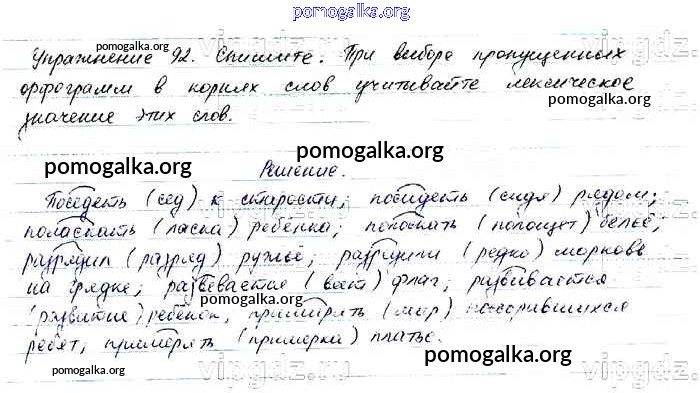 pomogalka.org
Упражнение 92. Спишите. При выборе пропущенных
pomogalka.org
vipgdz.ru
орфограмм в корнях слов учитывайте лексическое
pomogalka.org
значение этих слов.
pomogalka.org
pomogalka.org
Решение.
Поседеть (сед) к старости; посидеть (сидя) рядом;
поласкать (ласка) ребенка; полоскать (полощет) бельё;
pomogalka.org
разрядил (разряд) ружьё; разрядили (редко) морковь
на грядке; развевается (веет) флаг; развивается
pomogalka.org
(развитие) ребенок, примирять (мир) поссорившихся
ребят, примерять (примерка) платье.
pomogalka.org
pomogalka.org
vipgdz.ru
vipgdz.ru